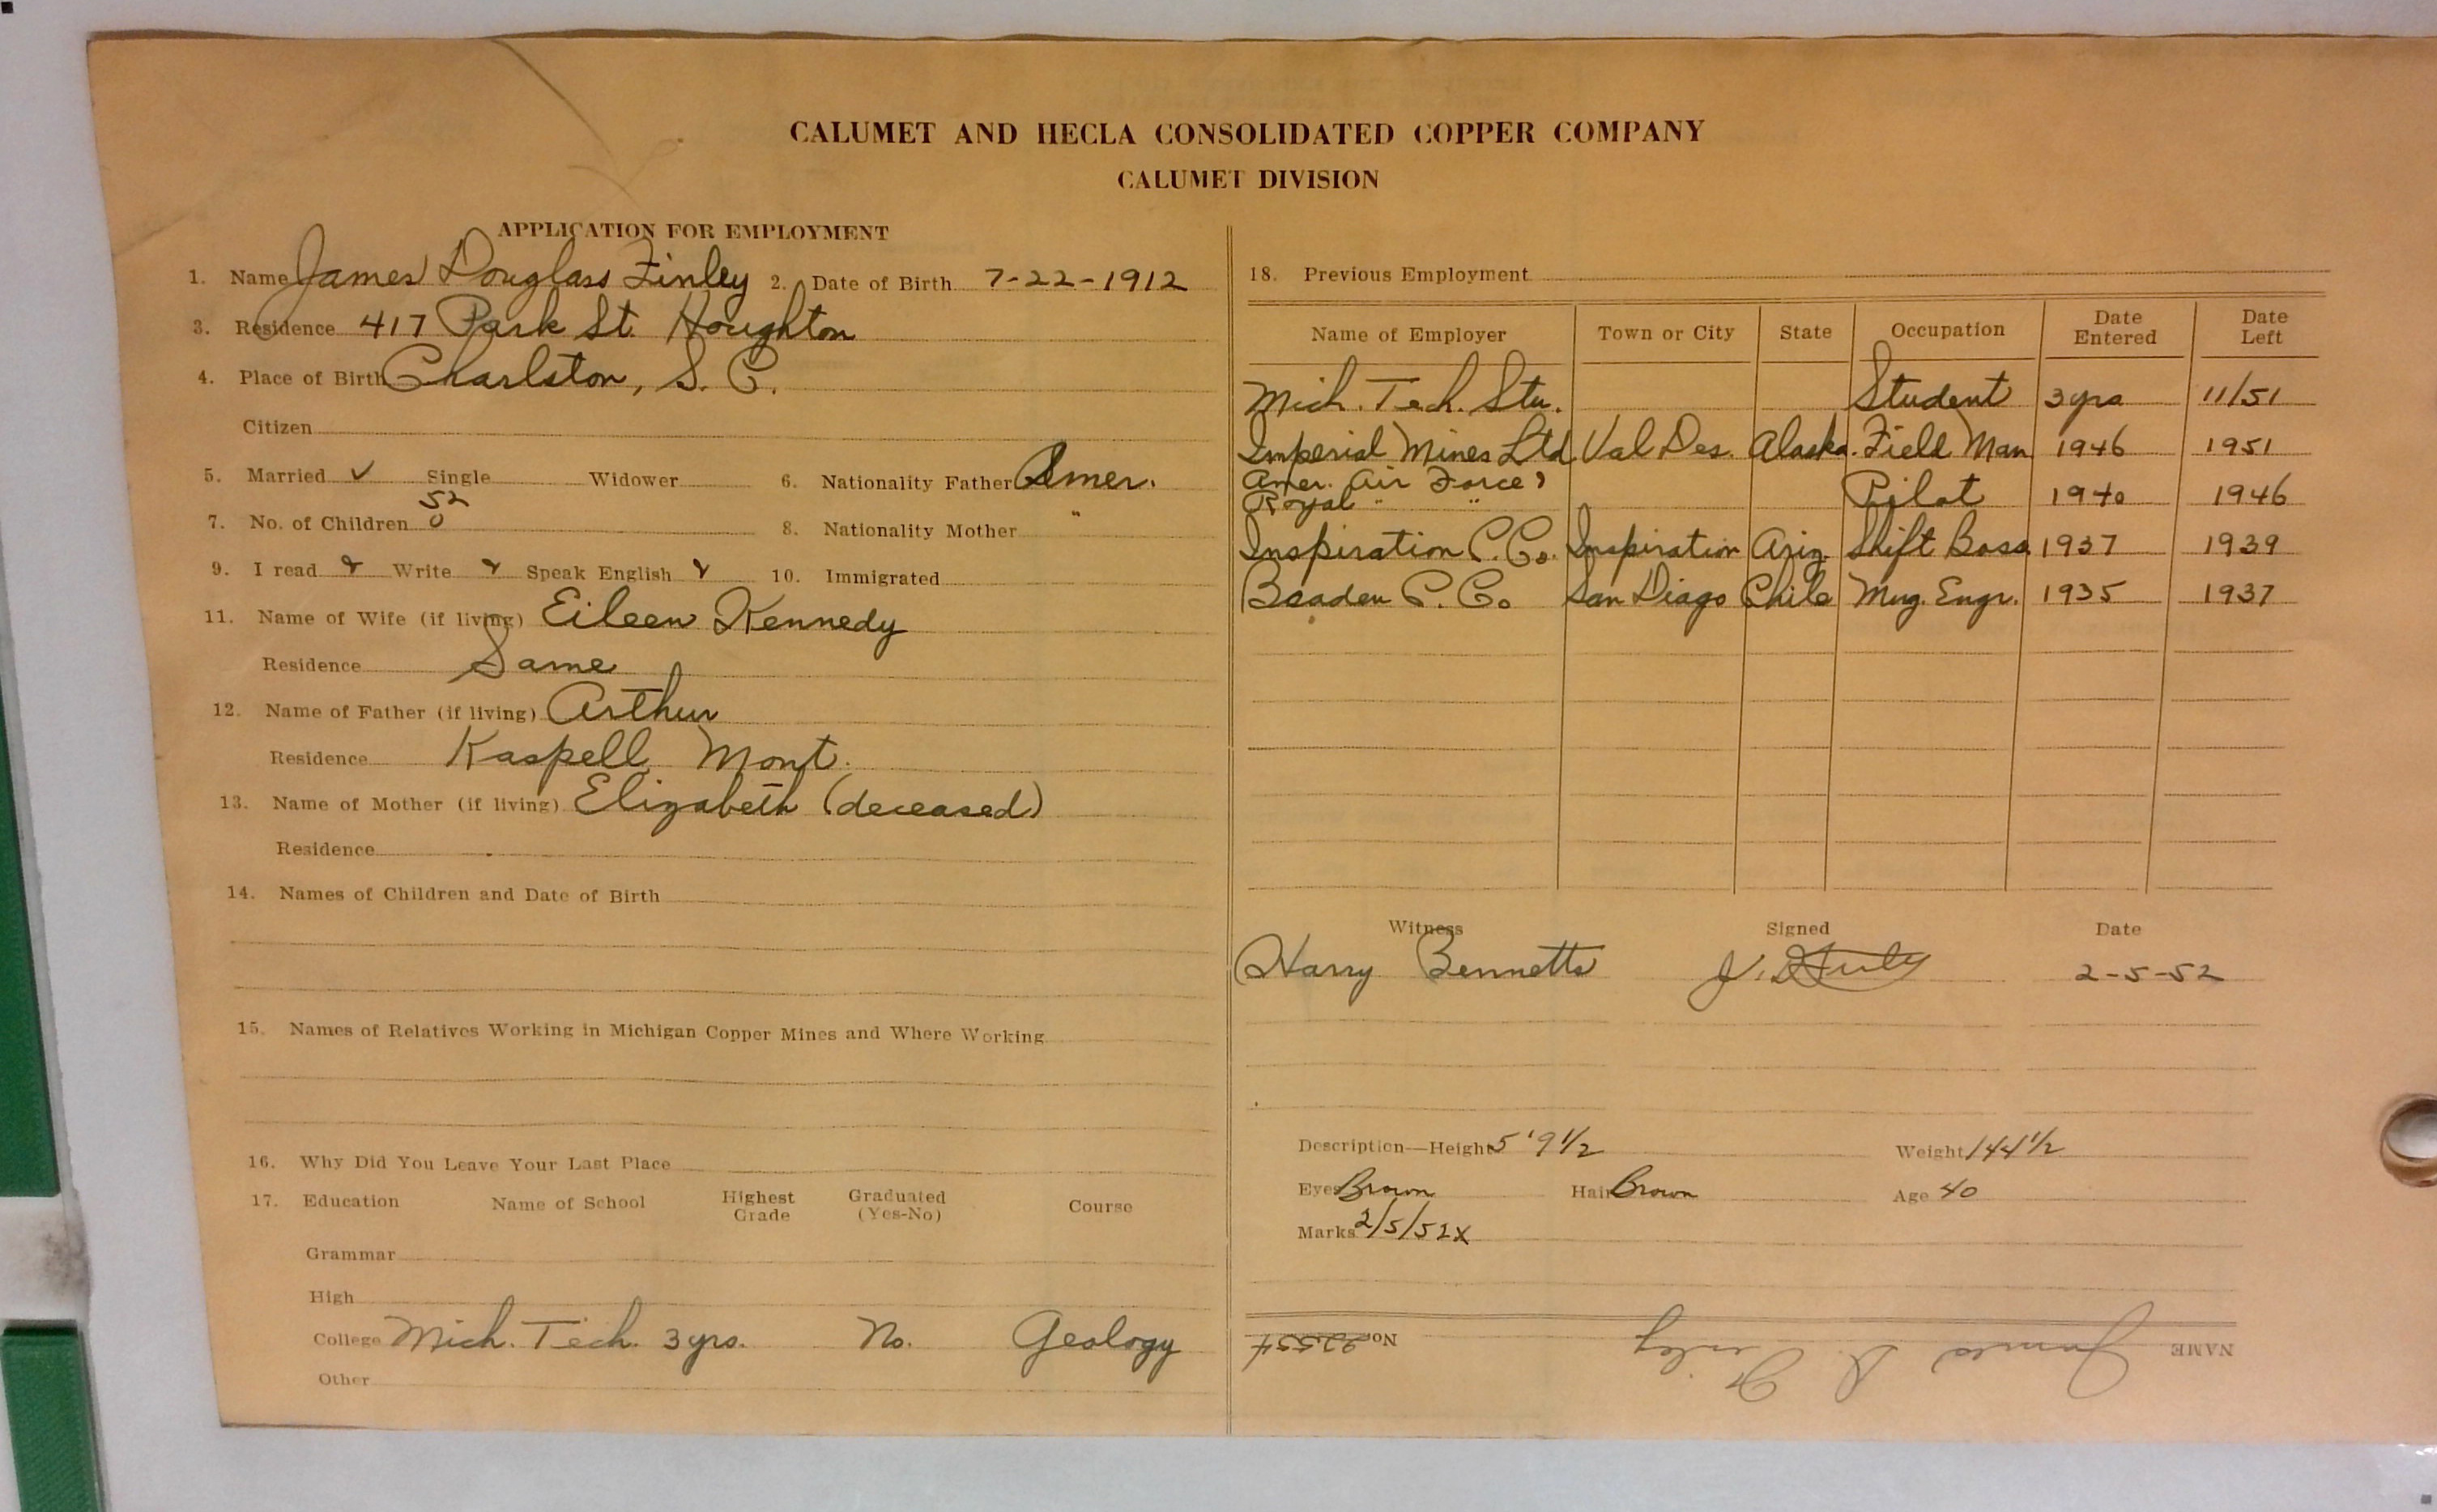 CALUMET AND HECLA CONSOLIDATED COPPER COMPANY
CALUMET DIVISION
APPLICATION FOR EMPLOYMENT
1. Name James Douglass Finley 2. Date of Birth 7-22-1912
3. Residence 417 Park St. Houghton
4. Place of Birth Charlston, S. C.
Citizen
5. Married ✓ Single Widower 6. Nationality Father Amer.
52
7. No. of Children 0 8. Nationality Mother "
9. I read Write Speak English 10. Immigrated
11. Name of Wife (if living) Eileen Kennedy
Residence Same
12. Name of Father (if living) Arthur
Residence Kaspell Mont.
13. Name of Mother (if living) Elizabeth (deceased)
Residence
14. Names of Children and Date of Birth
15. Names of Relatives Working in Michigan Copper Mines and Where Working
16. Why Did You Leave Your Last Place
17. Education Name of School Highest Grade Graduated (Yes-No) Course
Grammar
High
College Mich. Tech. 3 yrs. No. Geology
Other
18. Previous Employment
Name of Employer Town or City State Occupation Date Entered Date Left
Mich. Tech. Stu. Student 3 yrs 11/51
Imperial Mines Ltd Val Des. Alaska. Field Man 1946 1951
Amer. Air Force,
Royal " " Pilot 1940 1946
Inspiration C. Co. Inspiration Ariz. Shift Boss 1937 1939
Braden C. Co San Diago Chile Mng. Engr. 1935 1937
Witness Signed Date
Harry Bennetts 2-5-52
Description—Height 5'9 1/2 Weight 144 1/2
Eyes Brown Hair Brown Age 40
Marks 2/5/52 X
NAME James D. Finley No. 22554